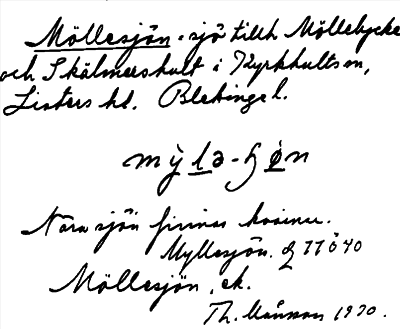 Möllesjön. sjö tillh Möllebycke
och Skälmershult i Kyrkhults sn,
Listers hd. Blekinge l.
mỳlə-ɧø̀n
Nära sjön finnes kvarnar.
Myllesjön. 77 Ö 40
Möllesjön, ek.
Th. Månsson 1920.